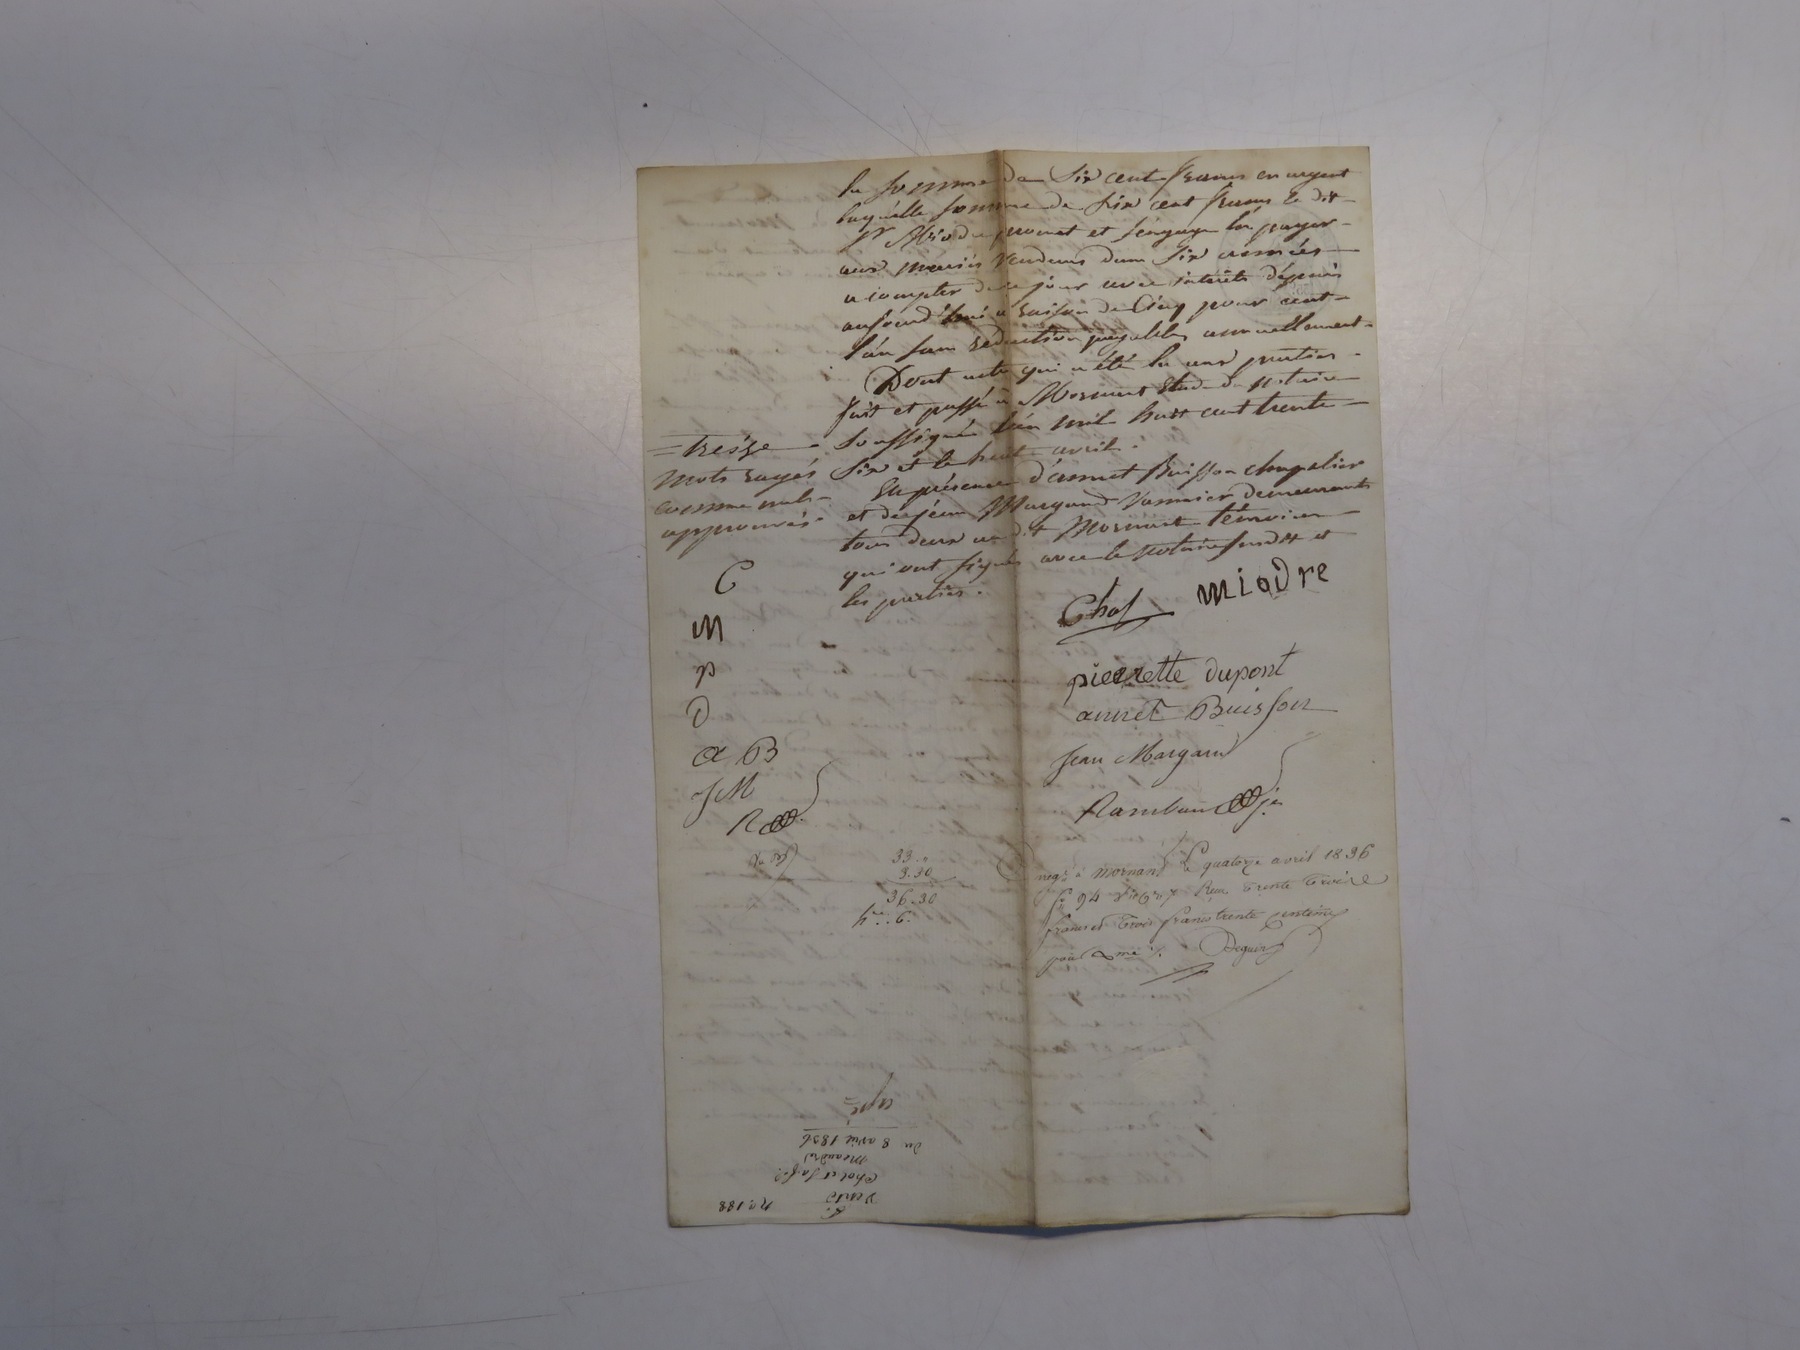 la somme de Six cent francs en argent
laquelle somme de Six cent francs le dit
Sr Miodre promet et s'engage la payer
aux mariés vendeurs dans Six années
a compter de ce jour avec intérêts dépuis
aujourd'hui a raison de Cinq pour cent
l'an sans réduction payables annuellement
Dont acte qui a été lu aux parties
fait et passé à Mornant Etude du notaire
Soussigné l'an mil huit cent trente
Six et le huit avril.
En présence d'annet Buisson chapelier
et de jean Margand Vannier demeurants
tous deux au dit Mornant témoins
qui ont signés avec le notaire susdit et
les parties.
treize
mots rayés
comme nuls
approuvés.
C
M
P
D
a B
JM
R
Chol miodre
pierrette dupont
annet Buisson
Jean Margand
Rambaud je
33. "
3. 30
36. 30
6.
Enregé à Mornant le quatorze avril 1836
fo 94 Vo Co 7 Reçu trente trois
francs et trois francs trente centimes
pour Dme /. Deguin
No. 188
Vente
Chol et sa fe
Meaudre
du 8 avril 1836